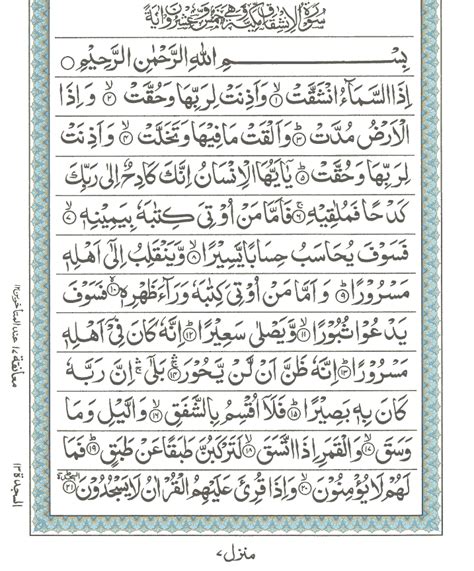 سُوْرَةُ الْاِنْشِقَاقِ مَكِّيَّةٌ وَّهِيَ خَمْسٌ وَّعِشْرُوْنَ اٰيَةً
بِسْمِ اللّٰهِ الرَّحْمٰنِ الرَّحِيْمِ ○
اِذَا السَّمَآءُ انْشَقَّتْ ۙ﴿١﴾ وَاَذِنَتْ لِرَبِّهَا وَحُقَّتْ ۙ﴿٢﴾ وَاِذَا
الْاَرْضُ مُدَّتْ ۙ﴿٣﴾ وَاَلْقَتْ مَا فِيْهَا وَتَخَلَّتْ ۙ﴿٤﴾ وَاَذِنَتْ
لِرَبِّهَا وَحُقَّتْ ؕ﴿٥﴾ يٰۤاَيُّهَا الْاِنْسَانُ اِنَّكَ كَادِحٌ اِلٰى رَبِّكَ
كَدْحًا فَمُلٰقِيْهِ ۚ﴿٦﴾ فَاَمَّا مَنْ اُوْتِيَ كِتٰبَهٗ بِيَمِيْنِهٖ ۙ﴿٧﴾
فَسَوْفَ يُحَاسَبُ حِسَابًا يَّسِيْرًا ۙ﴿٨﴾ وَّيَنْقَلِبُ اِلٰۤى اَهْلِهٖ
مَسْرُوْرًا ؕ﴿٩﴾ وَاَمَّا مَنْ اُوْتِيَ كِتٰبَهٗ وَرَآءَ ظَهْرِهٖ ۙ﴿١٠﴾ فَسَوْفَ
يَدْعُوْا ثُبُوْرًا ۙ﴿١١﴾ وَّيَصْلٰى سَعِيْرًا ؕ﴿١٢﴾ اِنَّهٗ كَانَ فِيْۤ اَهْلِهٖ
مَسْرُوْرًا ؕ﴿١٣﴾ اِنَّهٗ ظَنَّ اَنْ لَّنْ يَّحُوْرَ ۚۛ﴿١٤﴾ بَلٰۤى ۚۛ اِنَّ رَبَّهٗ
كَانَ بِهٖ بَصِيْرًا ؕ﴿١٥﴾ فَلَاۤ اُقْسِمُ بِالشَّفَقِ ۙ﴿١٦﴾ وَالَّيْلِ وَمَا
وَسَقَ ۙ﴿١٧﴾ وَالْقَمَرِ اِذَا اتَّسَقَ ۙ﴿١٨﴾ لَتَرْكَبُنَّ طَبَقًا عَنْ طَبَقٍ ؕ﴿١٩﴾ فَمَا
لَهُمْ لَا يُؤْمِنُوْنَ ۙ﴿٢٠﴾ وَاِذَا قُرِئَ عَلَيْهِمُ الْقُرْاٰنُ لَا يَسْجُدُوْنَ ؕ السجدة ﴿٢١﴾
معانقة ١٧ عند المتأخرين ١٢
السجدة ١٣
منزل ٧